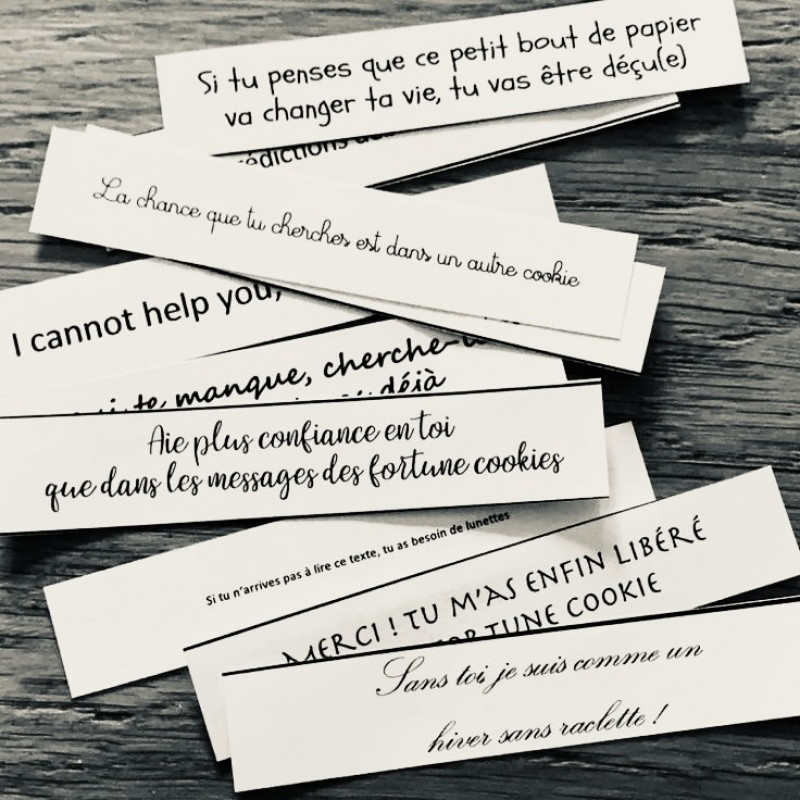 Si tu penses que ce petit bout de papier
va changer ta vie, tu vas être déçu(e)
La chance que tu cherches est dans un autre cookie
I cannot help you,
manque,
déjà
Aie plus confiance en toi
que dans les messages des fortune cookies
Si tu n'arrives pas à lire ce texte, tu as besoin de lunettes
MERCI ! TU M'AS ENFIN LIBÉRÉ
FORTUNE COOKIE
Sans toi je suis comme un
hiver sans raclette !